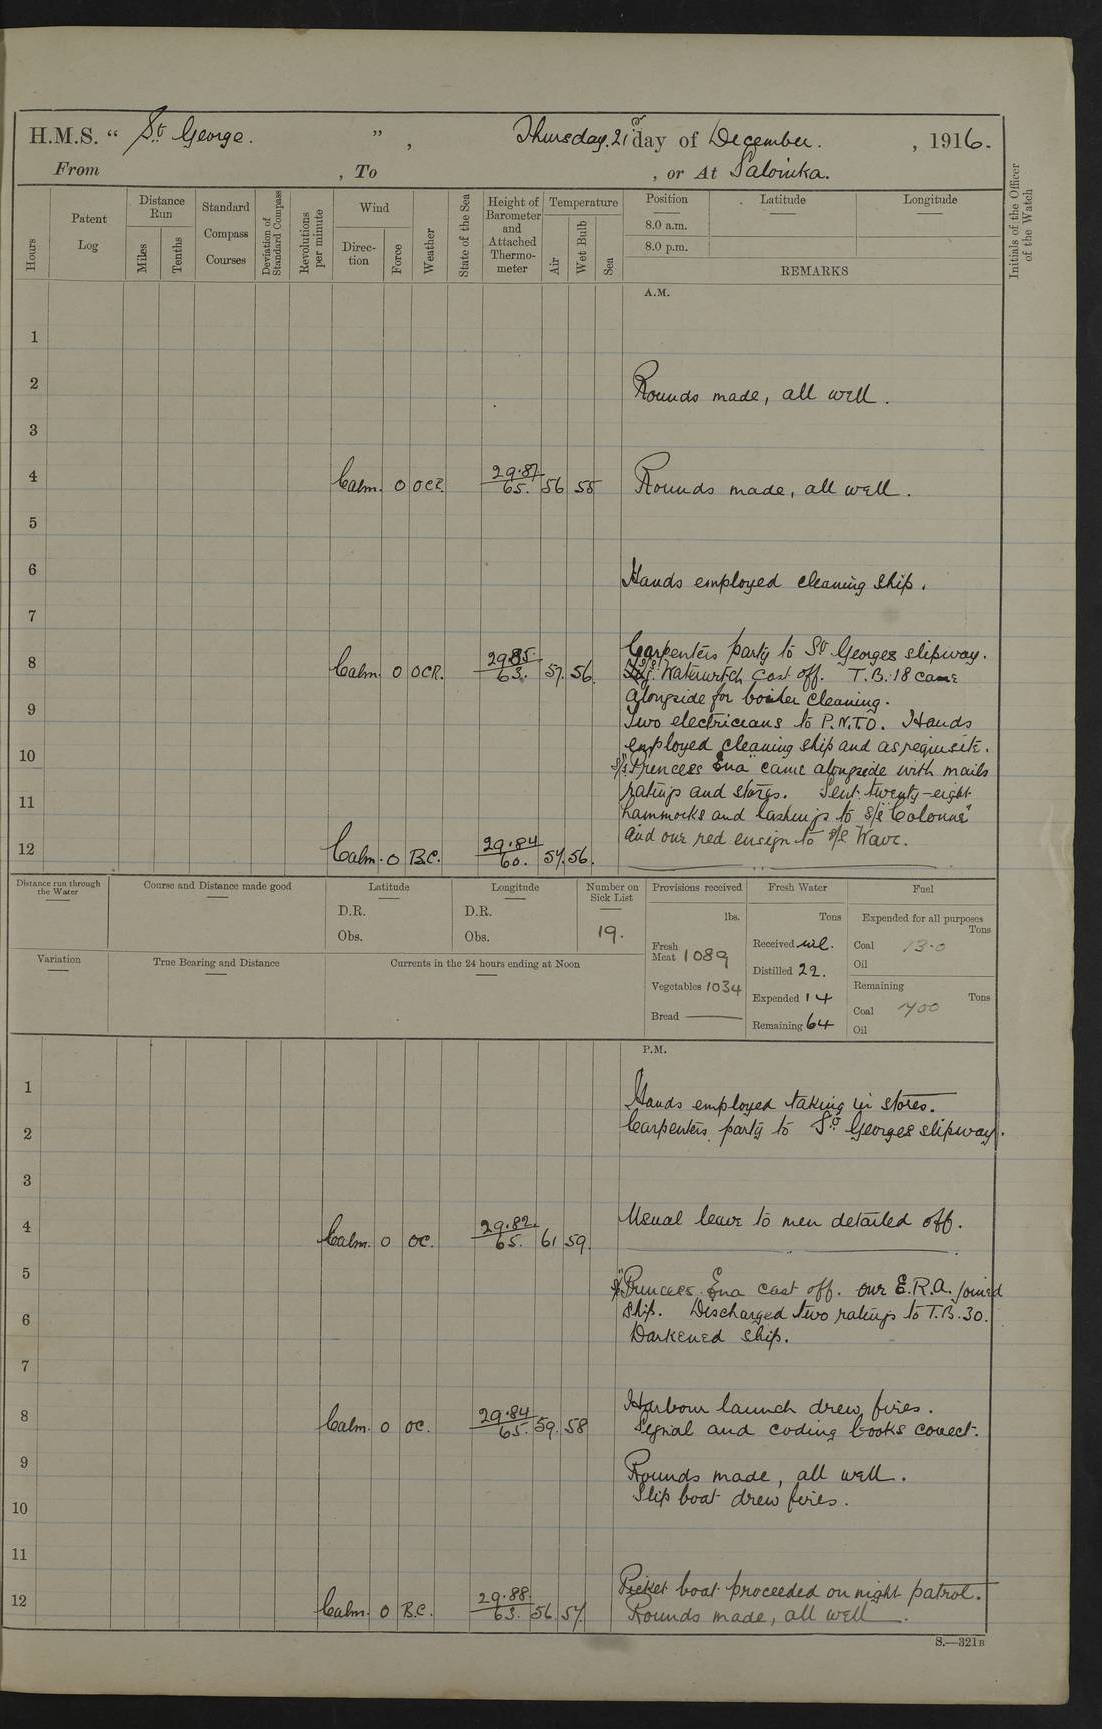 H.M.S. " St. George. ", Thursday. 21st day of December. , 1916.
From , To , or At Salonika.
Hours
Patent Log
Distance Run
Miles
Tenths
Standard Compass Courses
Deviation of Standard Compass
Revolutions per minute
Wind
Direction
Force
Weather
State of the Sea
Height of Barometer and Attached Thermometer
Temperature
Air
Wet Bulb
Sea
Position Latitude Longitude
8.0 a.m.
8.0 p.m.
REMARKS
Initials of the Officer of the Watch
A.M.
1
2 Rounds made, all well.
3
4 Calm. 0 OCR. 29.87 65. 56 55 Rounds made, all well.
5
6 Hands employed cleaning ship.
7
Carpenters party to St Georges slipway.
8 Calm. 0 OCR. 29.85. 63. 57. 56. cast off. T.B. 18 came
alongside for boiler cleaning.
9 Two electricians to P.N.T.O. Hands
employed cleaning ship and as requisite.
10 s/s "Princess Ena" came alongside with mails
ratings and stores. Sent twenty-eight
11 hammocks and lashings to s/s
12 Calm. 0 B.C. 29.84 60. 57. 56. and one red ensign to s/s Wave.
Distance run through the Water
Course and Distance made good
Latitude
D.R.
Obs.
Longitude
D.R.
Obs.
Number on Sick List
19.
Provisions received
lbs.
Fresh Meat 1089
Vegetables 1034
Bread ———
Fresh Water
Tons
Received nil.
Distilled 22.
Expended 14
Remaining 64
Fuel
Expended for all purposes
Tons
Coal 13.0
Oil
Remaining
Tons
Coal 700
Oil
Variation
True Bearing and Distance
Currents in the 24 hours ending at Noon
P.M.
1 Hands employed taking in stores.
2 Carpenters party to St. Georges slipway.
3
4 Calm. 0 OC. 29.82. 65. 61 59. Usual leave to men detailed off.
5 "Princess Ena cast off. one E.R.A. joined
6 ship. Discharged two ratings to T.B. 30.
Darkened ship.
7
Harbour launch drew fires.
8 Calm. 0 OC. 29.84 65. 59. 58 Signal and coding books correct.
9 Rounds made, all well.
10 Slip boat drew fires.
11
Picket boat proceeded on night patrol.
12 Calm. 0 B.C. 29.88. 63. 56. 54. Rounds made, all well.
S.—321B